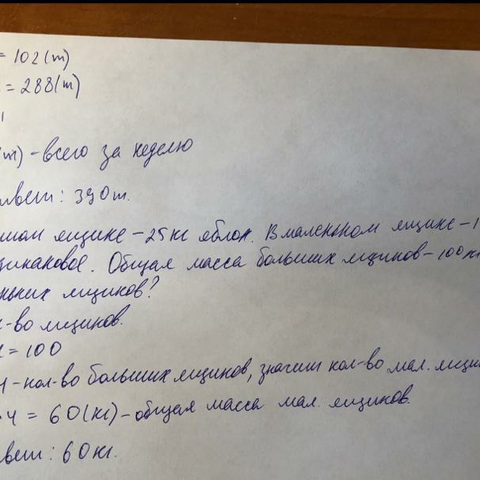 = 102(т)
= 288(т)
т) - всего за неделю
твет: 390 т.
шом ящике - 25 кг яблок. В маленьком ящике - 1
динаковое. Общая масса больших ящиков - 100 кг
ньких ящиков?
к-во ящиков.
= 100
4 - кол-во больших ящиков, значит кол-во мал. ящи
· 4 = 60(кг) - общая масса мал. ящиков.
вет: 60 кг.